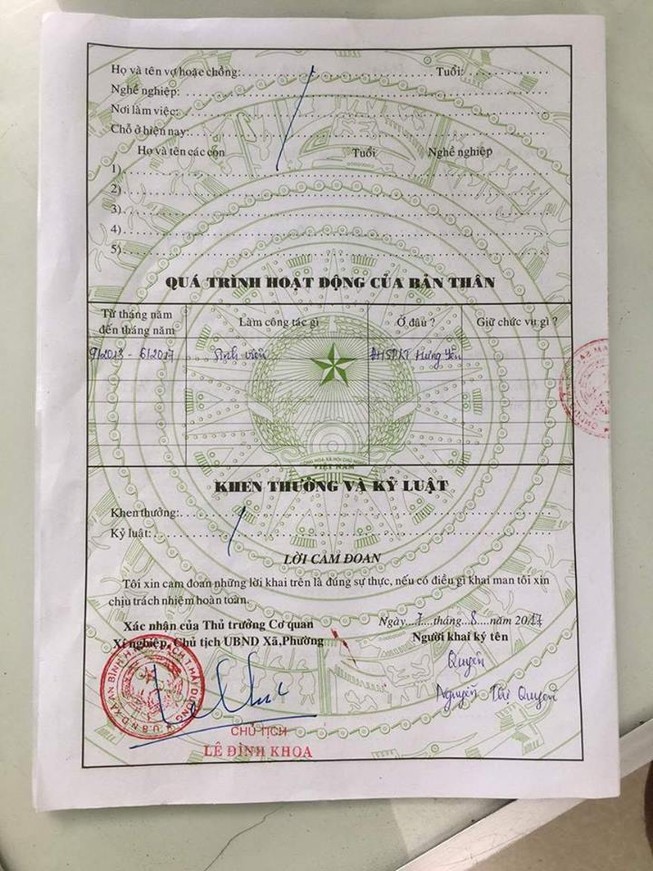 Họ và tên vợ hoặc chồng: Tuổi:
Nghề nghiệp:
Nơi làm việc:
Chỗ ở hiện nay:
Họ và tên các con Tuổi Nghề nghiệp
1)
2)
3)
4)
5)
QUÁ TRÌNH HOẠT ĐỘNG CỦA BẢN THÂN
Từ tháng năm đến tháng năm Làm công tác gì Ở đâu ? Giữ chức vụ gì ?
9/2013 - 6/2017 Sinh viên ĐHSPKT Hưng Yên
VIỆT NAM
KHEN THƯỞNG VÀ KỶ LUẬT
Khen thưởng:
Kỷ luật:
LỜI CAM ĐOAN
Tôi xin cam đoan những lời khai trên là đúng sự thực, nếu có điều gì khai man tôi xin
chịu trách nhiệm hoàn toàn.
Xác nhận của Thủ trưởng Cơ quan
Xí nghiệp, Chủ tịch UBND Xã,Phường
Ngày...7...tháng...8...năm 2017
Người khai ký tên
Quyên
Nguyễn Thị Quyên
CHỦ TỊCH
LÊ ĐÌNH KHOA